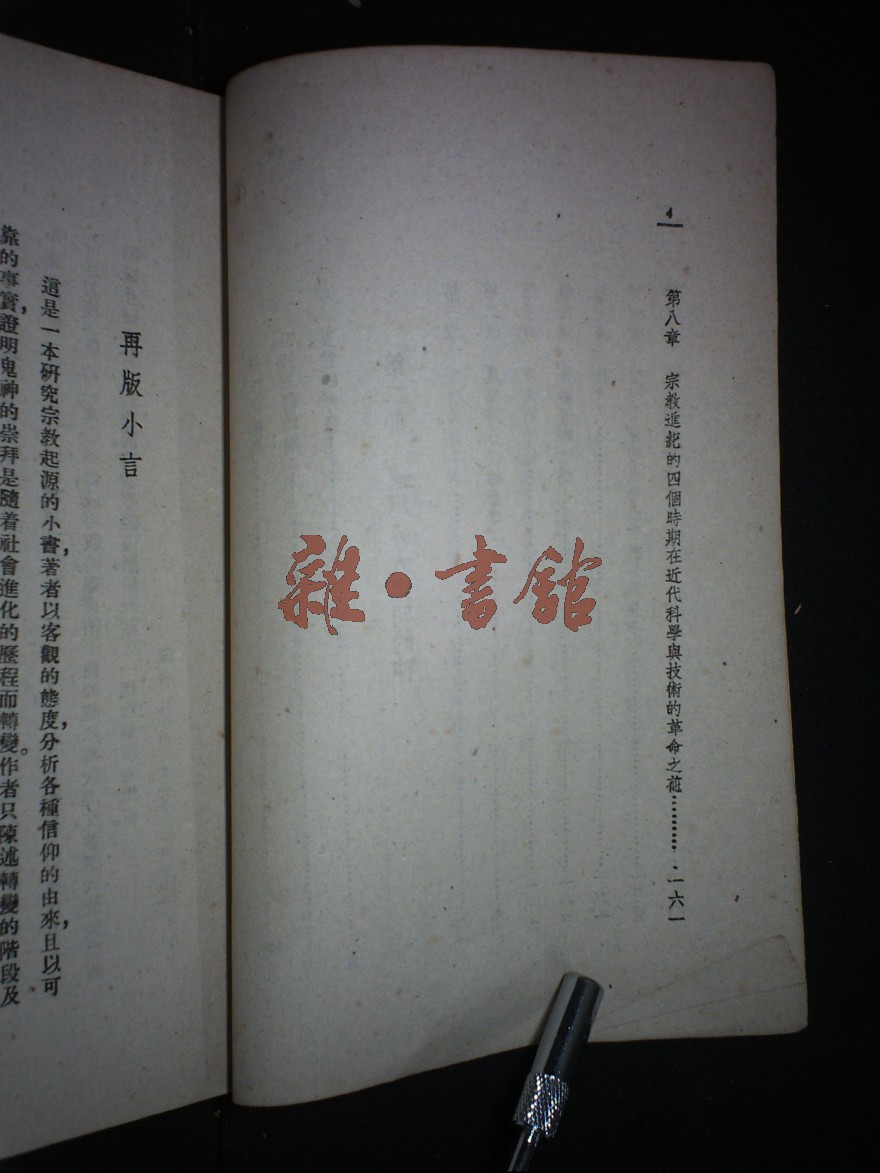 4
第八章　宗教進化的四個時期在近代科學與技術的革命之前…………一六一
再版小言
這是一本研究宗教起源的小書，著者以客觀的態度，分析各種信仰的由來，且以可
靠的事實，證明鬼神的崇拜是隨着社會進化的歷程而轉變。作者只陳述轉變的階段及
雜·書館